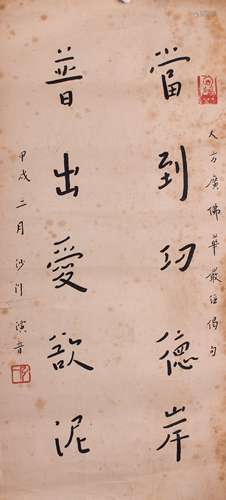 大方廣佛華嚴經偈句
當到功德岸
普出愛欲泥
甲戌二月沙門演音